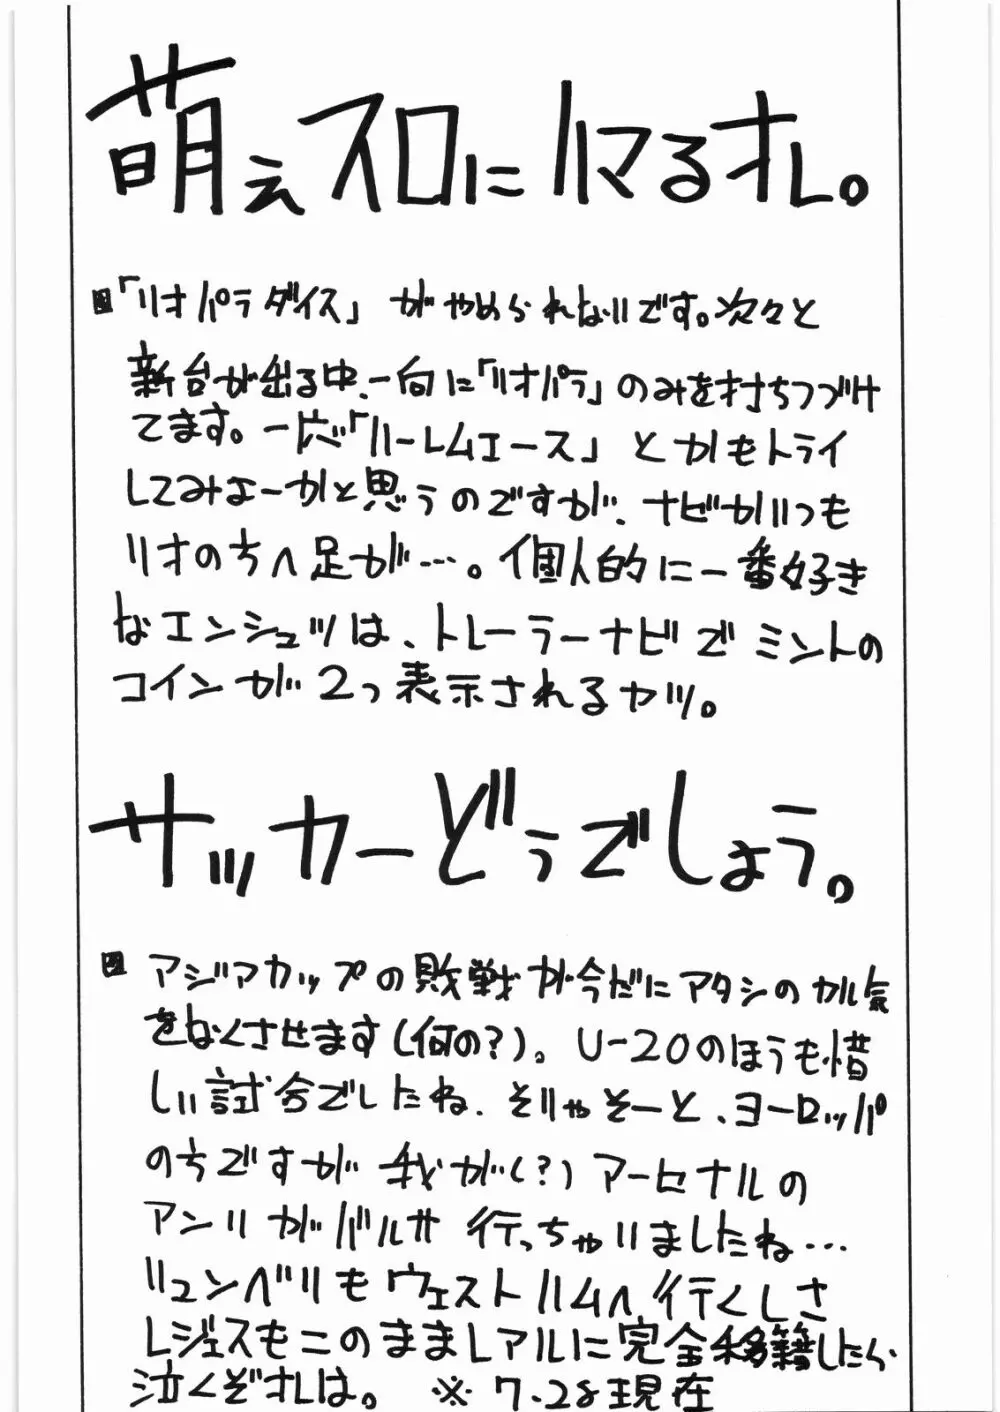 萌えスロにハマるオレ。
「リオパラダイス」がやめられないです。次々と
新台が出る中、一向に「リオパラ」のみを打ちつづけ
てます。一応「ハーレムエース」とかもトライ
してみよーかと思うのですが、ナゼかいつも
リオの方へ足が…。個人的に一番好き
なエンシュツは、トレーラーナビでミントの
コインが2つ表示されるヤツ。
サッカーどうでしょう。
アジアカップの敗戦が今だにアタシのヤル気
をなくさせます(何の?)。U-20のほうも惜
しい試合でしたね、そりゃそーと、ヨーロッパ
の方ですが我が(?)アーセナルの
アンリがバルサ行っちゃいましたね…
リュンベリもウェストハムへ行くしさ
レジェスもこのままレアルに完全移籍したら
泣くぞオレは。 ※7.28現在